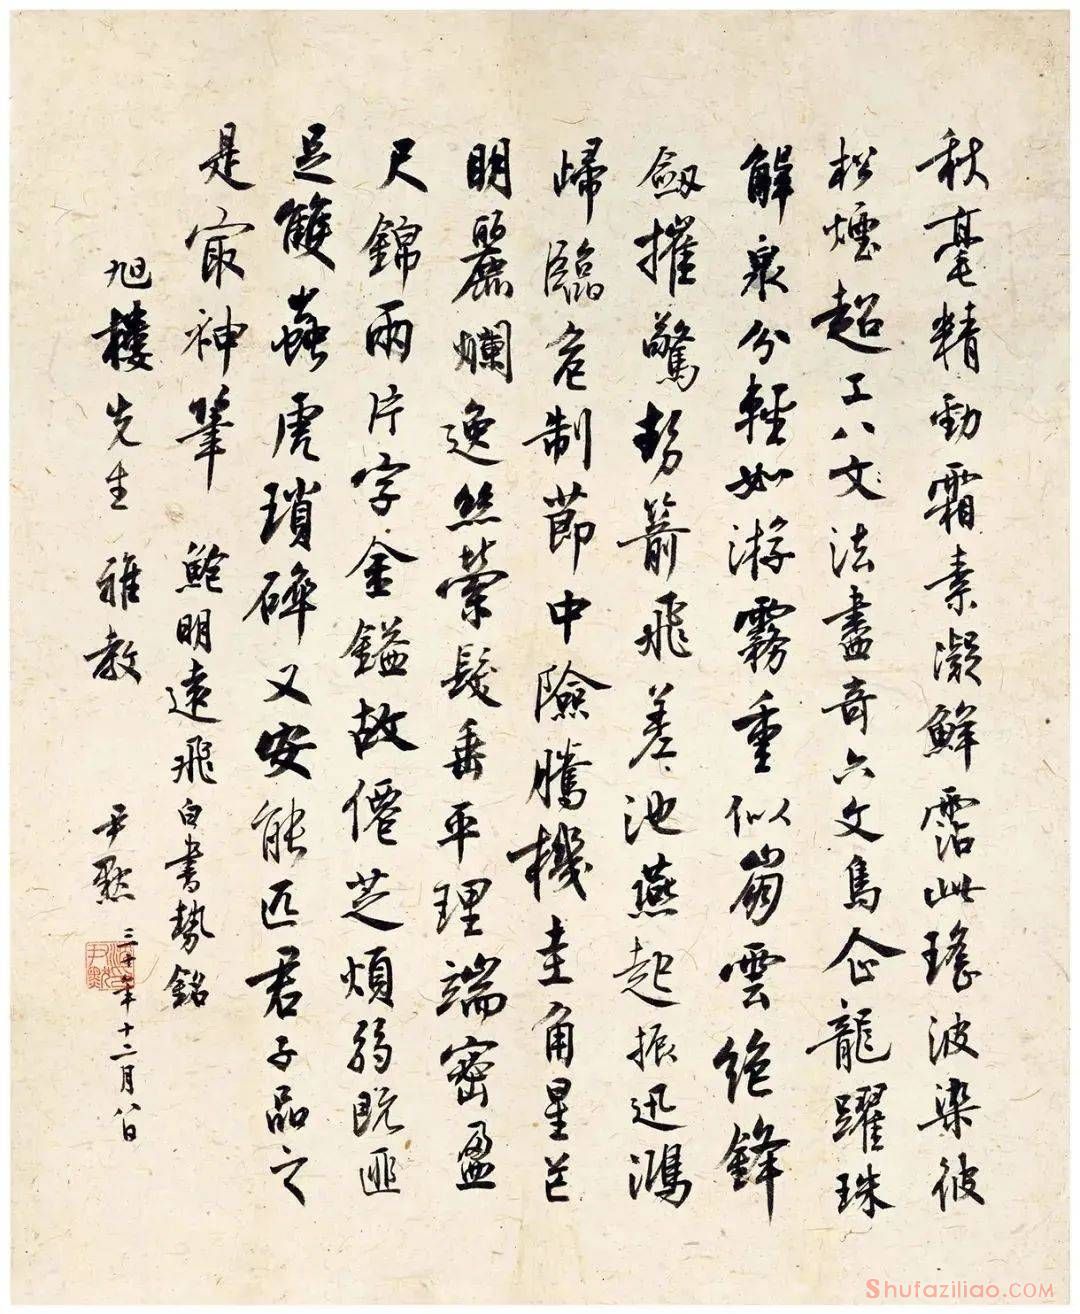 秋毫精勁霜素凝鮮霑此瑤波染彼
松煙超工八文法盡奇六文鳥企龍躍珠
解泉分輕如游霧重似崩雲絕鋒
劔摧驚勢箭飛差池燕起振迅鴻
歸臨危制節中險騰機圭角星芒
明麗爛逸絲縈髮垂平理端密盈
尺錦兩片字金鎰故僊芝煩弱既匪
足雙蟲虎瑣碎又安能匹君子品之
是㝡神筆 鮑明遠飛白書勢銘
旭樓先生雅教 尹默 三十年十二月八日
沈尹默
Shufaziliao.COM